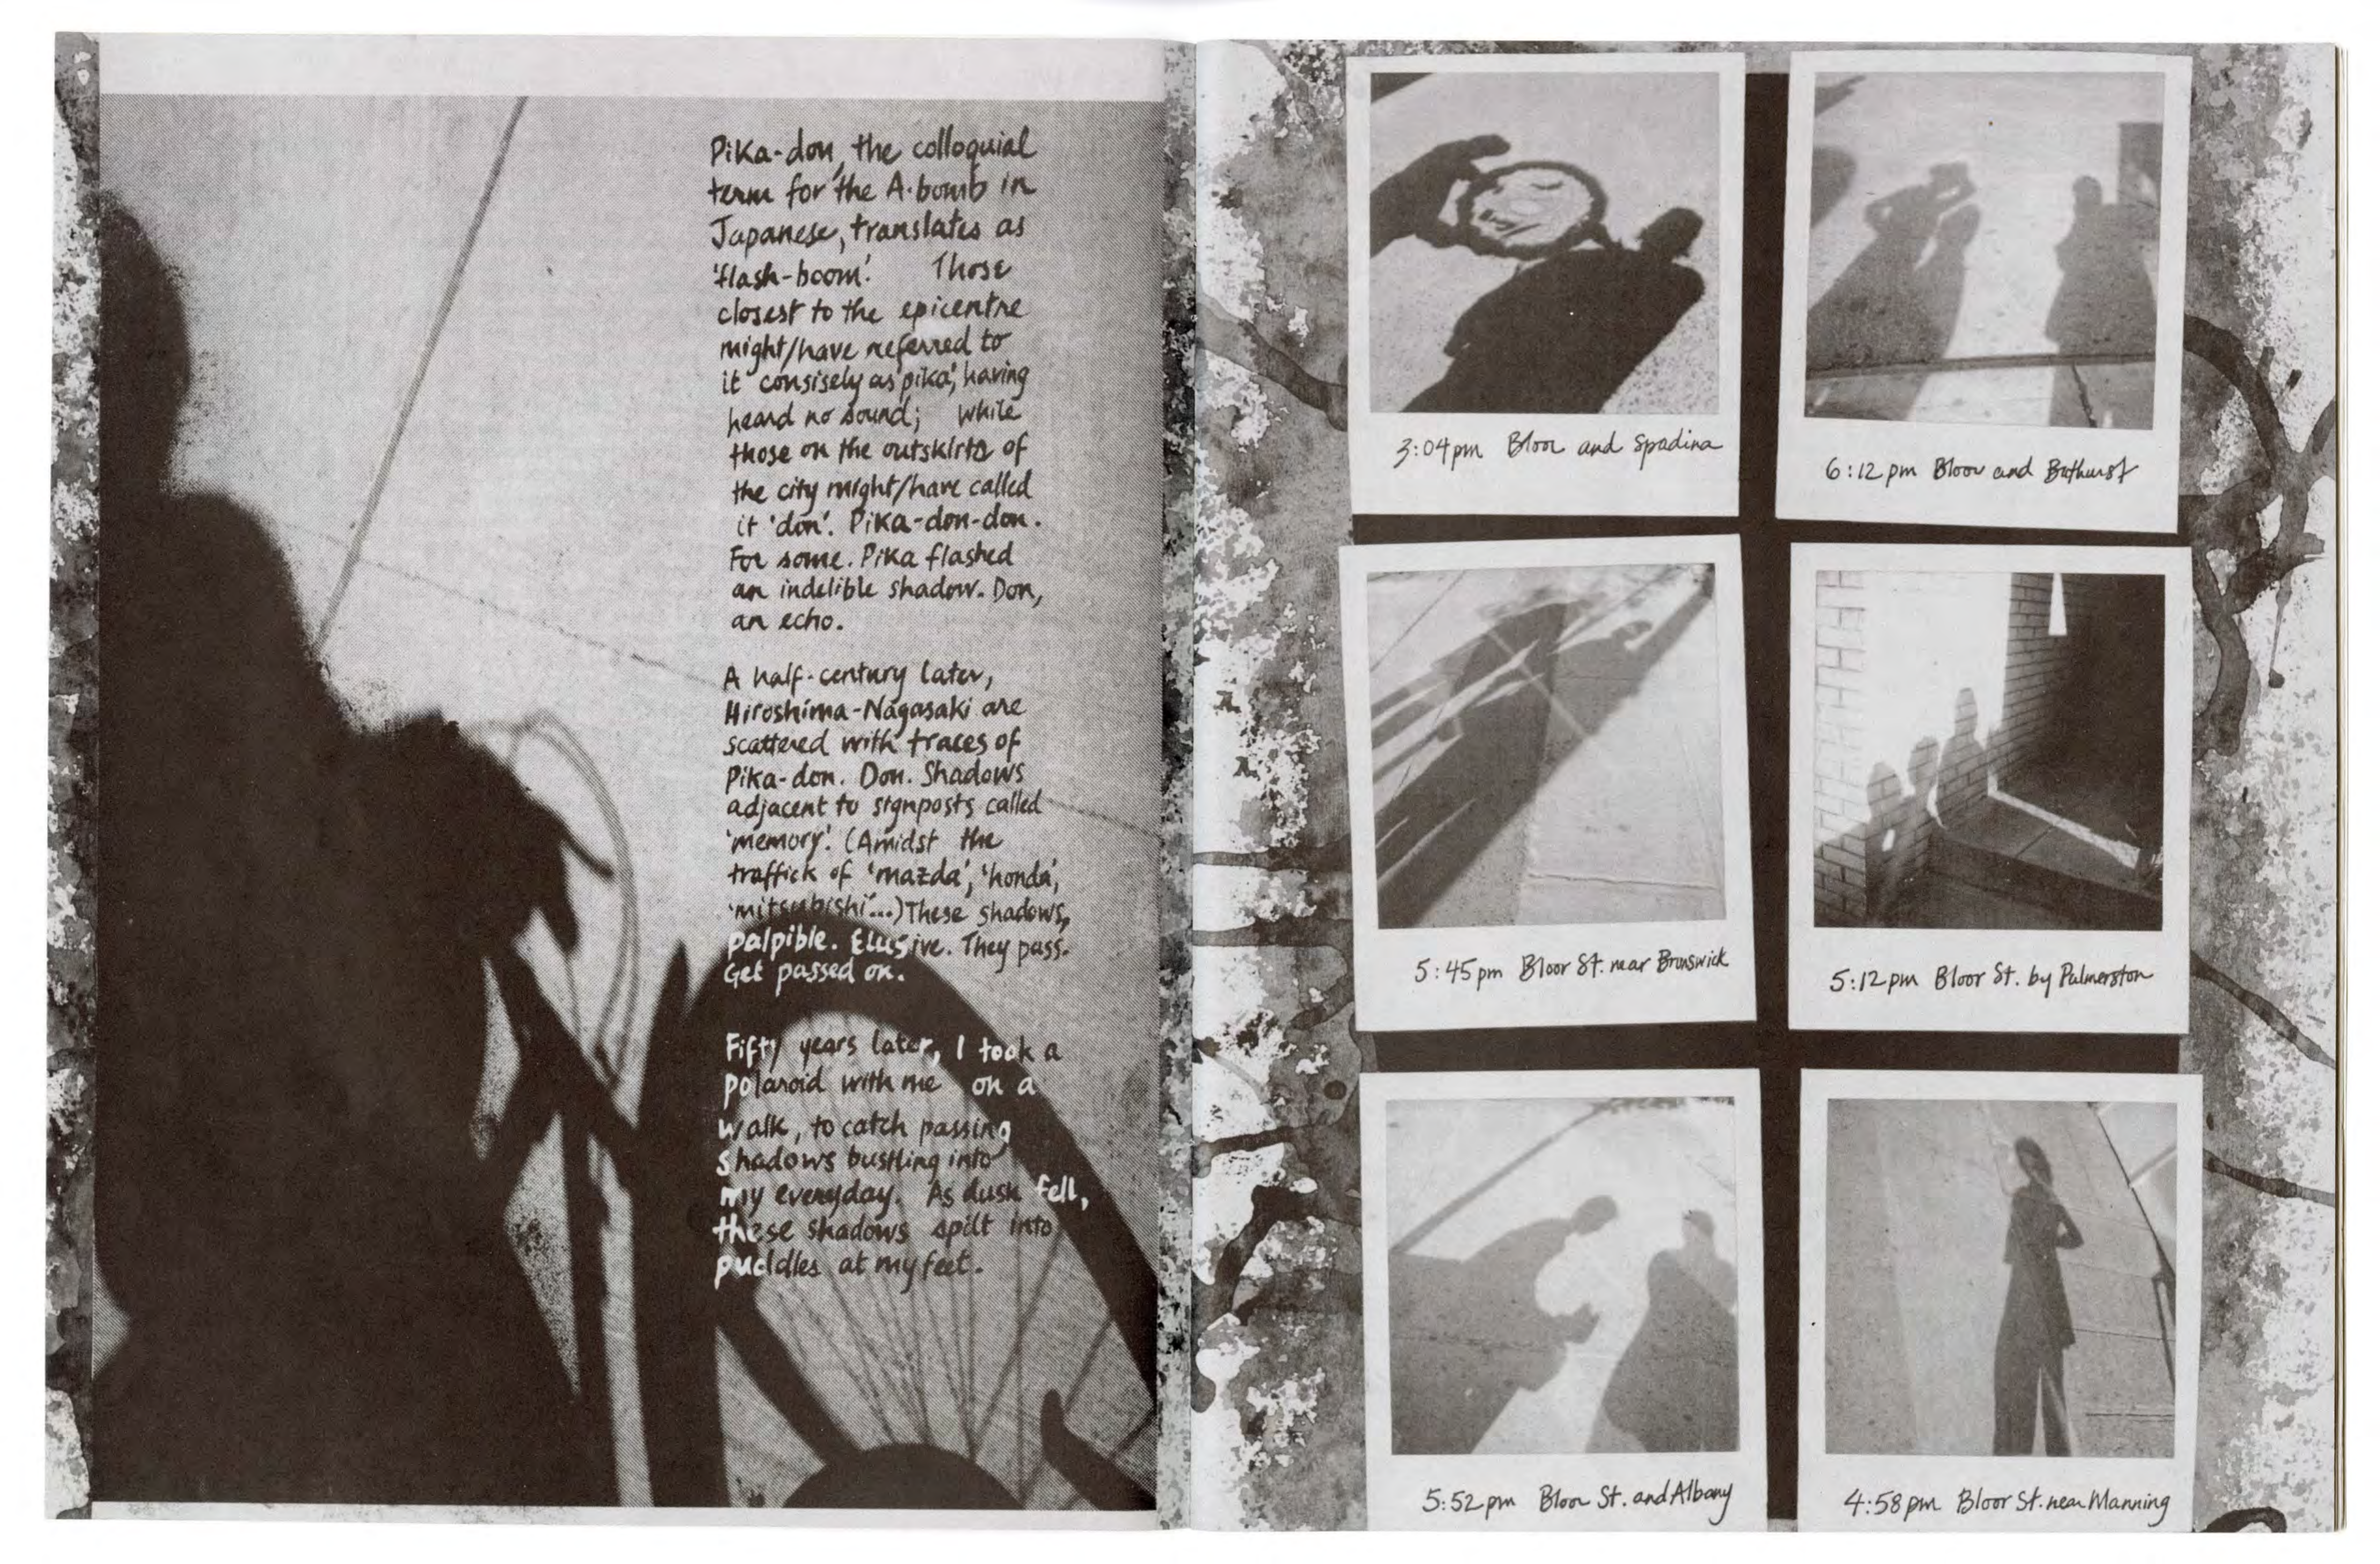 Pika-don, the colloquial
term for the A-bomb in
Japanese, translates as
'flash-boom'. Those
closest to the epicentre
might/have referred to
it consisely as 'pika', having
heard no sound; while
those on the outskirts of
the city might/have called
it 'don'. Pika-don-don.
For some. Pika flashed
an indelible shadow. Don,
an echo.
A half-century later,
Hiroshima-Nagasaki are
scattered with traces of
Pika-don. Don. Shadows
adjacent to signposts called
'memory'. (Amidst the
traffick of 'mazda', 'honda',
'mitsubishi'...) These shadows,
palpible. Elusive. They pass.
Get passed on.
Fifty years later, I took a
polaroid with me on a
walk, to catch passing
shadows bustling into
my everyday. As dusk fell,
these shadows spilt into
puddles at my feet.
3:04pm Bloor and Spadina
6:12pm Bloor and Bathurst
5:45pm Bloor St. near Brunswick
5:12pm Bloor St. by Palmerston
5:52pm Bloor St. and Albany
4:58pm Bloor St. near Manning